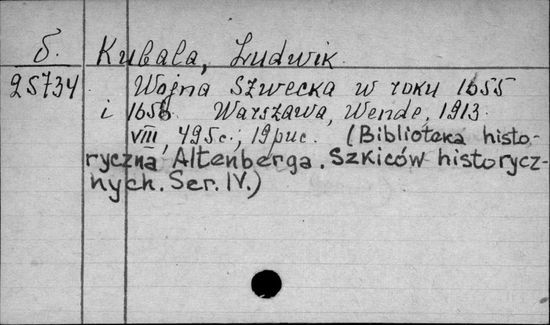 б. Kubala, Ludwik.
25734 Wojna Szwecka w roku 1655
i 1656. Warszawa, Wende, 1913.
VIII, 495 c.; 19 рис. (Biblioteka histo-
ryczna Altenberga. Szkiców historycz-
nych. Ser. IV.)